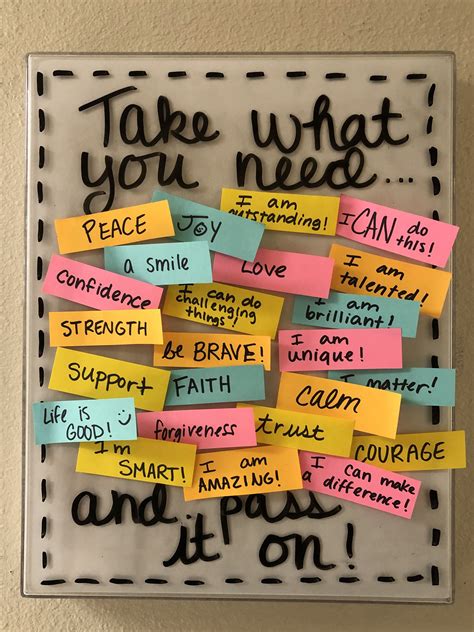 Take what
you need...
PEACE
JOY
I am
outstanding!
I CAN do
this!
a smile
LOVE
I am
talented!
confidence
I can do
challenging
things!
I am
brilliant!
STRENGTH
be BRAVE!
I am
unique!
Support
FAITH
CALM
I matter!
Life is
GOOD!
forgiveness
trust
COURAGE
I'm
SMART!
I am
AMAZING!
I can make
a difference!
and.. pass
it on!